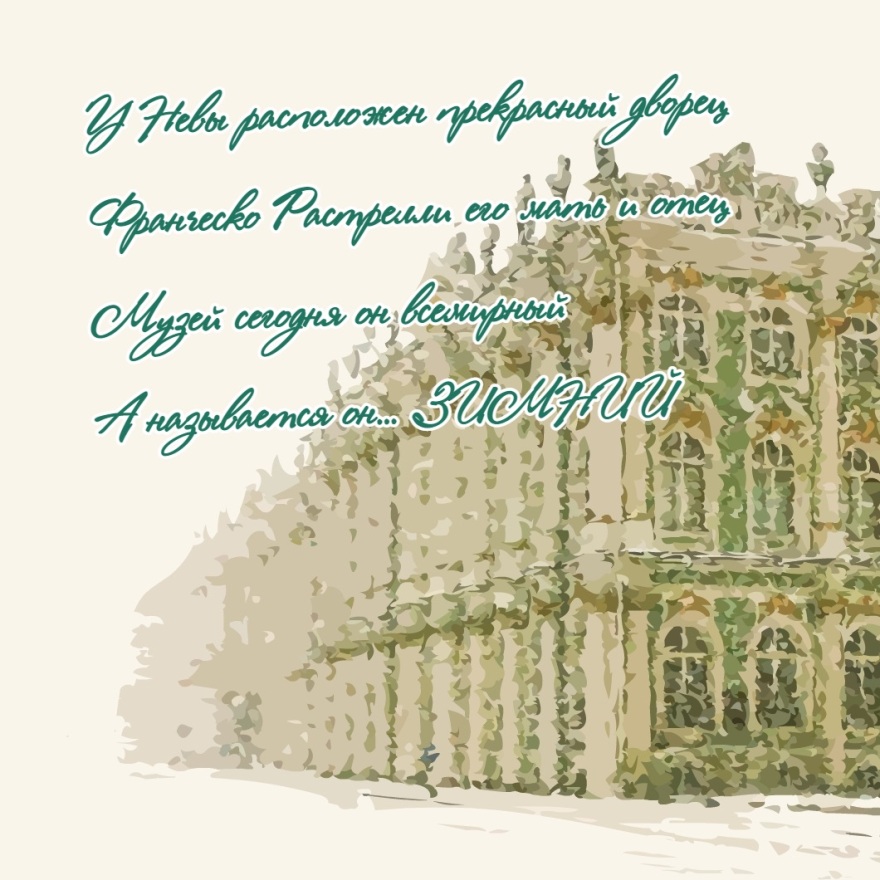 У Невы расположен прекрасный дворец
Франческо Растрелли его мать и отец
Музей сегодня он всемирный
А называется он... ЗИМНИЙ